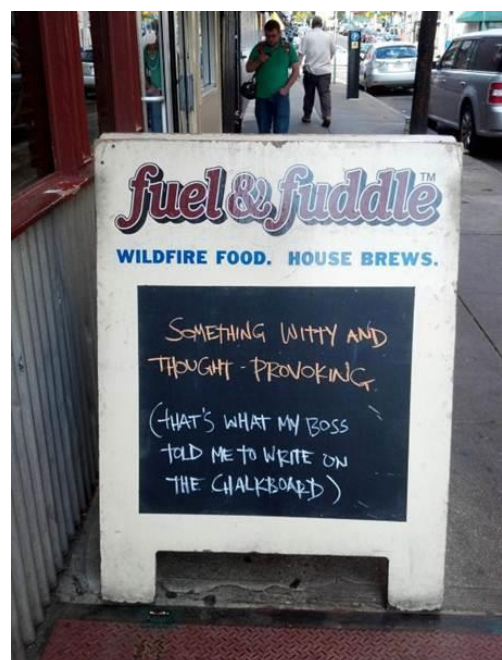 fuel & fuddle™
WILDFIRE FOOD. HOUSE BREWS.
SOMETHING WITTY AND
THOUGHT-PROVOKING
(THAT'S WHAT MY BOSS
TOLD ME TO WRITE ON
THE CHALKBOARD)